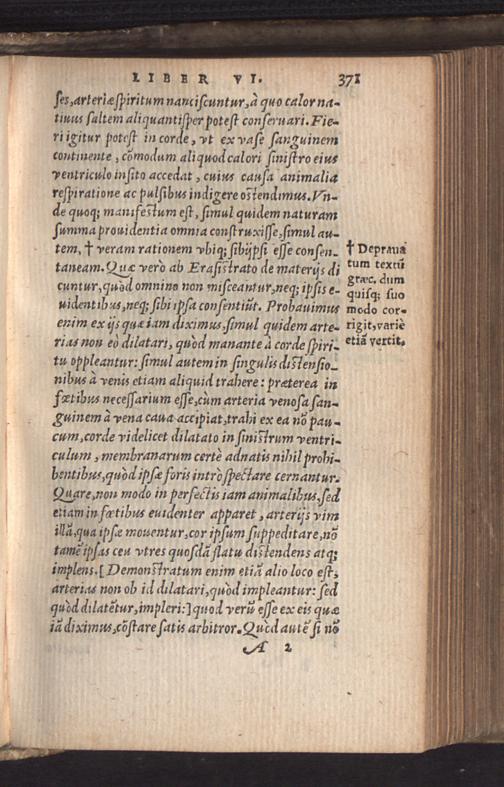 LIBER VI. 371
ses, arteriæ spiritum nanciscuntur, à quo calor na-
tiuus saltem aliquantisper potest conseruari. Fie-
ri igitur potest in corde, vt ex vase sanguinem
continente, cõmodum aliquod calori sinistro eius
ventriculo insito accedat, cuius causa animalia
respiratione ac pulsibus indigere ostendimus. Vn-
de quoq; manifestum est, simul quidem naturam
summa prouidentia omnia construxisse, simul au-
tem, † veram rationem vbiq; sibijpsi esse consen-
taneam. Quæ verò ab Erasistrato de materijs di
cuntur, quòd omnino non misceantur, neq; ipsis e-
uidentibus, neq; sibi ipsa consentiũt. Probauimus
enim ex ijs quæ iam diximus, simul quidem arte-
rias non eò dilatari, quòd manante à corde spiri-
tu oppleantur: simul autem in singulis distensio-
nibus à venis etiam aliquid trahere: præterea in
fœtibus necessarium esse, cùm arteria venosa san-
guinem à vena caua accipiat, trahi ex ea nõ pau-
cum, corde videlicet dilatato in sinistrum ventri-
culum, membranarum certè adnatis nihil prohi-
bentibus, quòd ipsæ foris intrò spectare cernantur.
Quare, non modo in perfectis iam animalibus, sed
etiam in fœtibus euidenter apparet, arterijs vim
illã, qua ipsæ mouentur, cor ipsum suppeditare, nõ
tamẽ ipsas ceu vtres quosdã flatu distendens atq;
implens. [Demonstratum enim etiã alio loco est,
arterias non ob id dilatari, quòd impleantur: sed
quòd dilatẽtur, impleri:] quod verũ esse ex eis quæ
iã diximus, cõstare satis arbitror. Quòd autẽ si nõ
A 2
† Deprauã
tum textũ
græc. dum
quisq; suo
modo cor-
rigit, variè
etiã vertit.